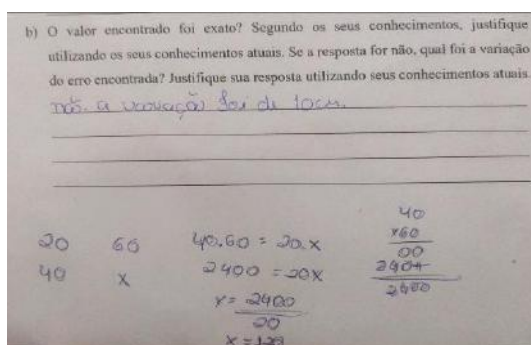 b) O valor encontrado foi exato? Segundo os seus conhecimentos, justifique
utilizando os seus conhecimentos atuais. Se a resposta for não, qual foi a variação
do erro encontrada? Justifique sua resposta utilizando seus conhecimentos atuais.
não. a variação foi de 10cm.
40
20 60 40.60 = 20.x x60
40 x 2400 = 20x 00
x = 2400 240+
20 2400
x = 120